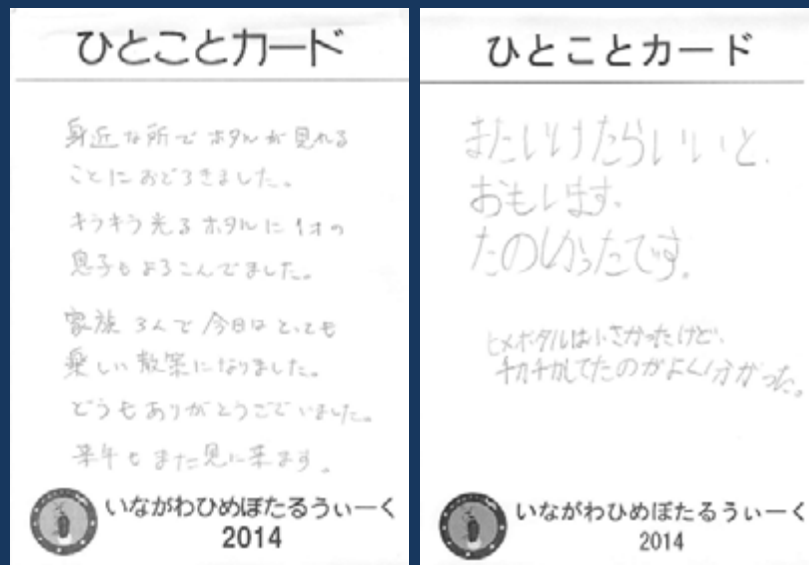 ひとことカード
身近な所でホタルが見れる
ことにおどろきました。
キラキラ光るホタルに1才の
息子もよろこんでました。
家族3人で今日はとっても
楽しい散策になりました。
どうもありがとうございました。
来年もまた見に来ます。
いながわひめぼたるうぃーく
2014
ひとことカード
またいけたらいいと、
おもいます、
たのしかったです。
ヒメボタルは小さかったけど、
チカチカしてたのがよく分かった。
いながわひめぼたるうぃーく
2014